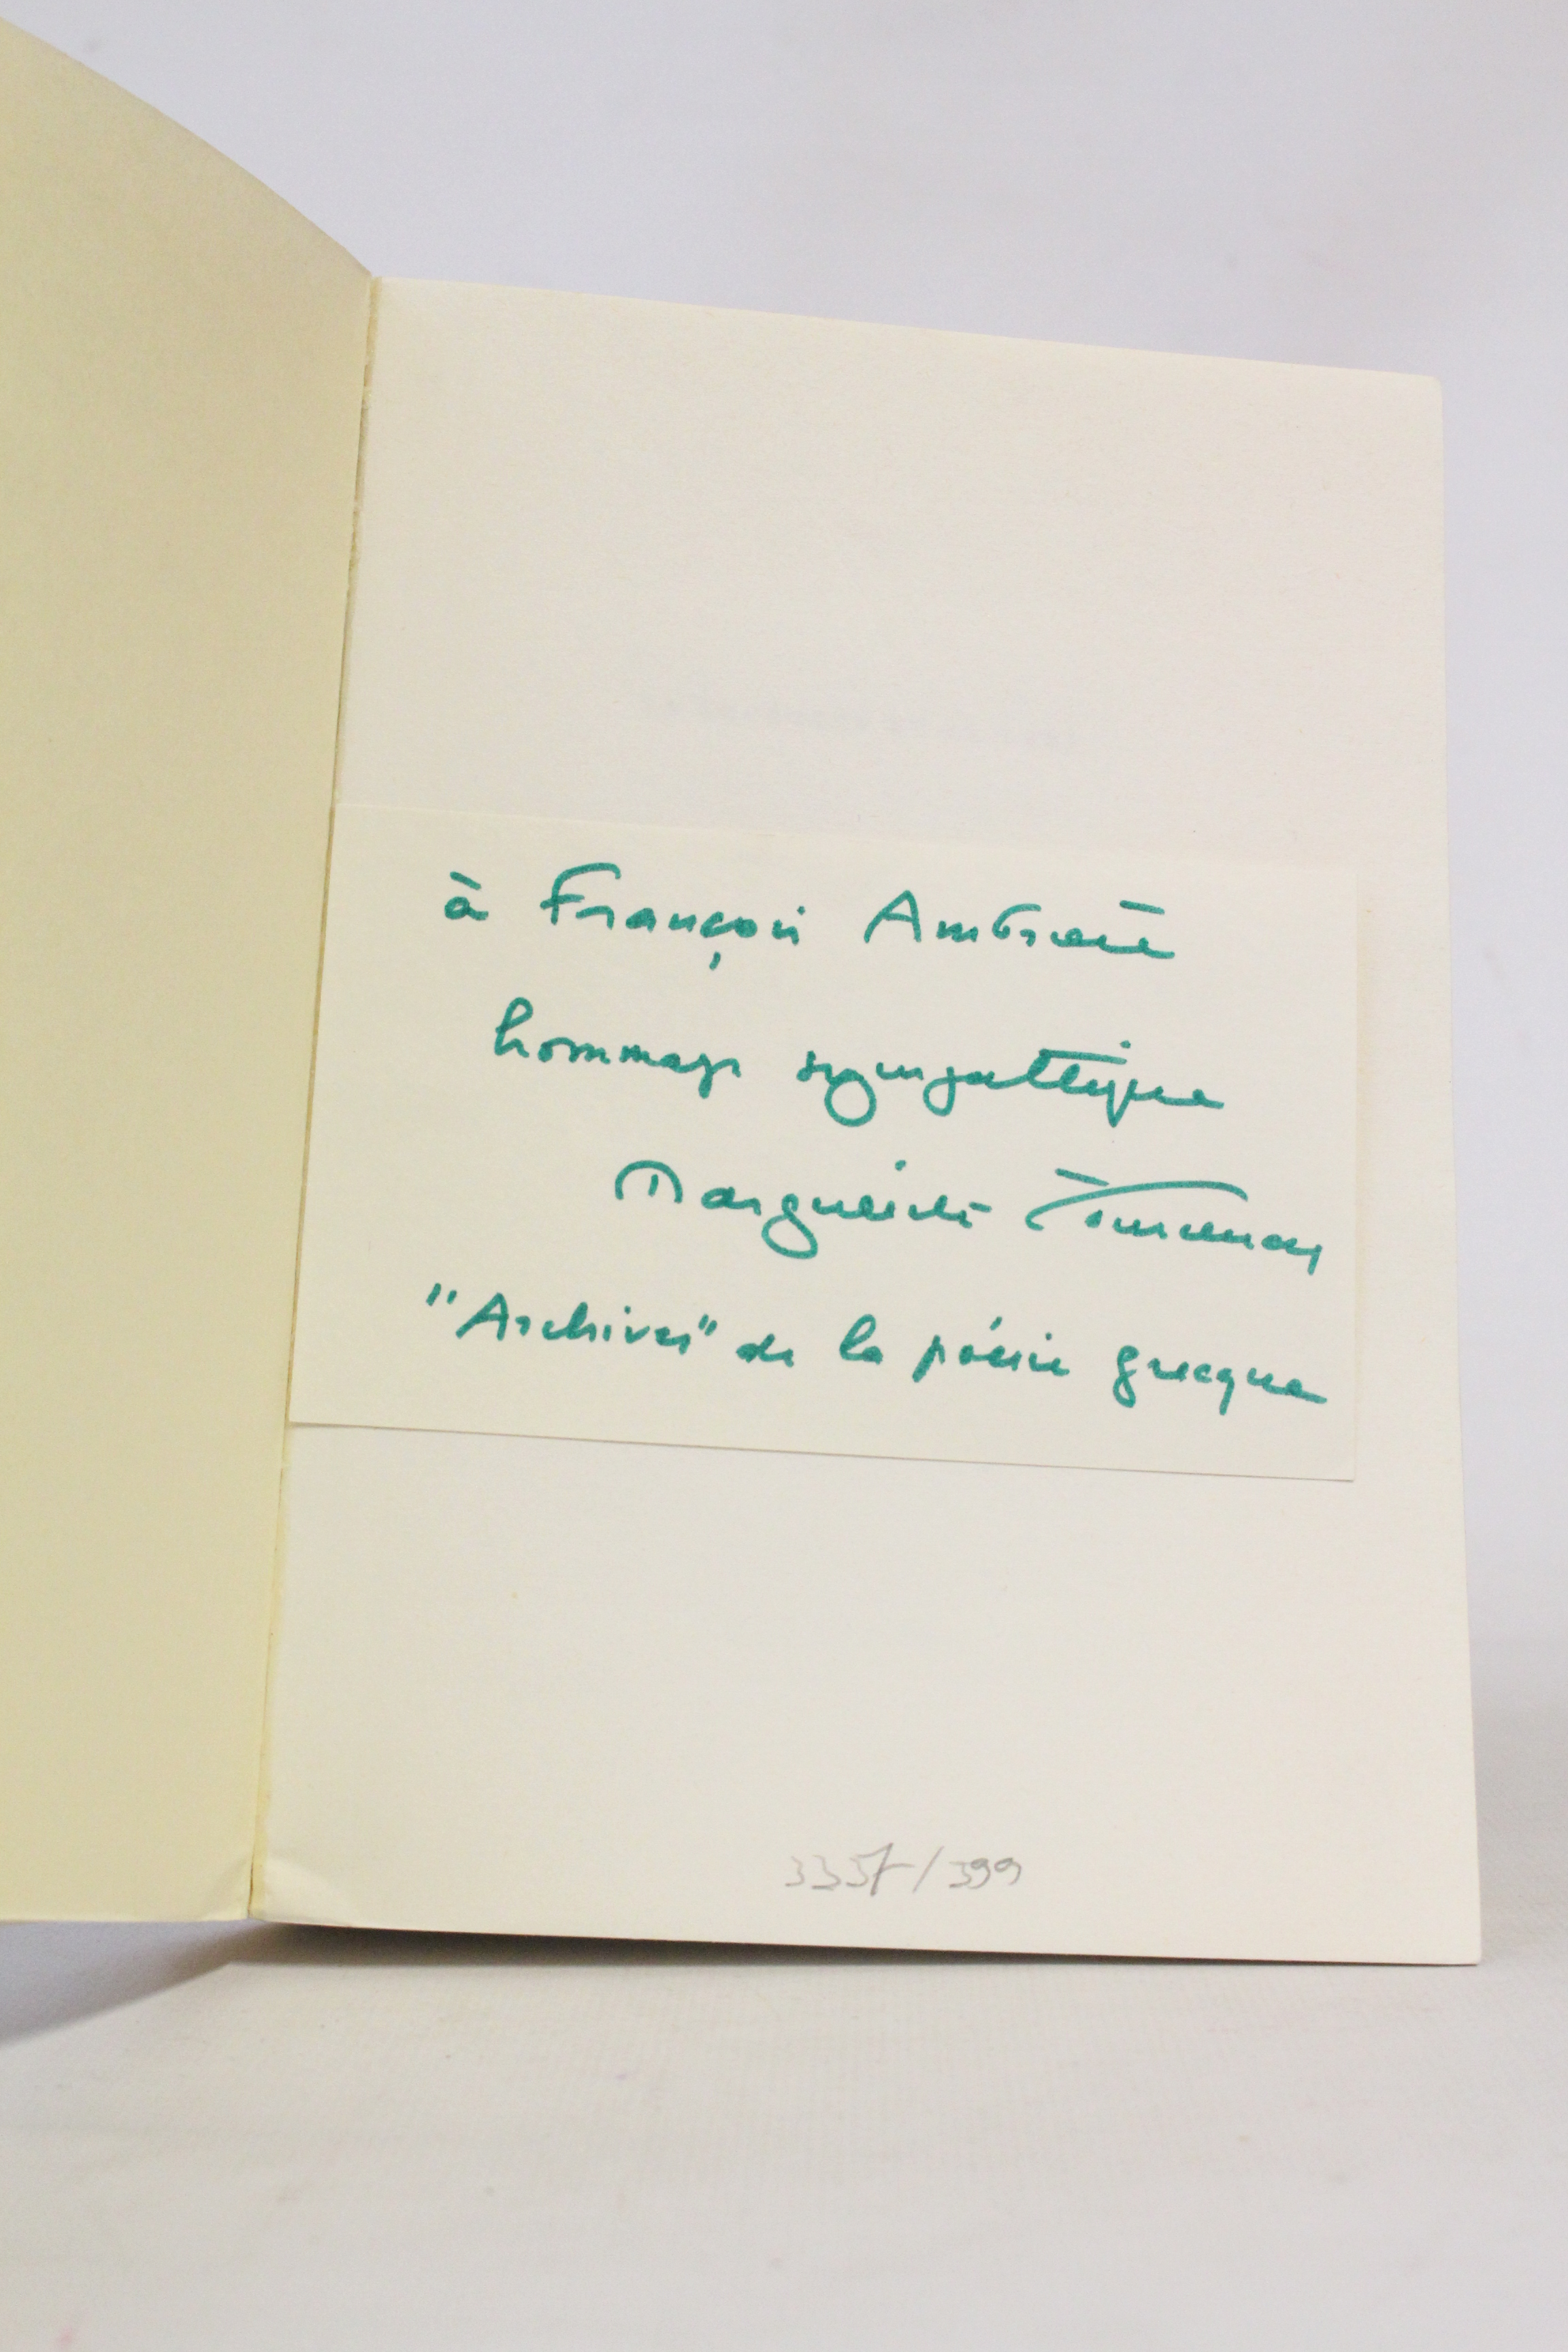 à François Ambrière
hommage sympathique
Marguerite Yourcenar
"Archives" de la poésie grecque
3357/399